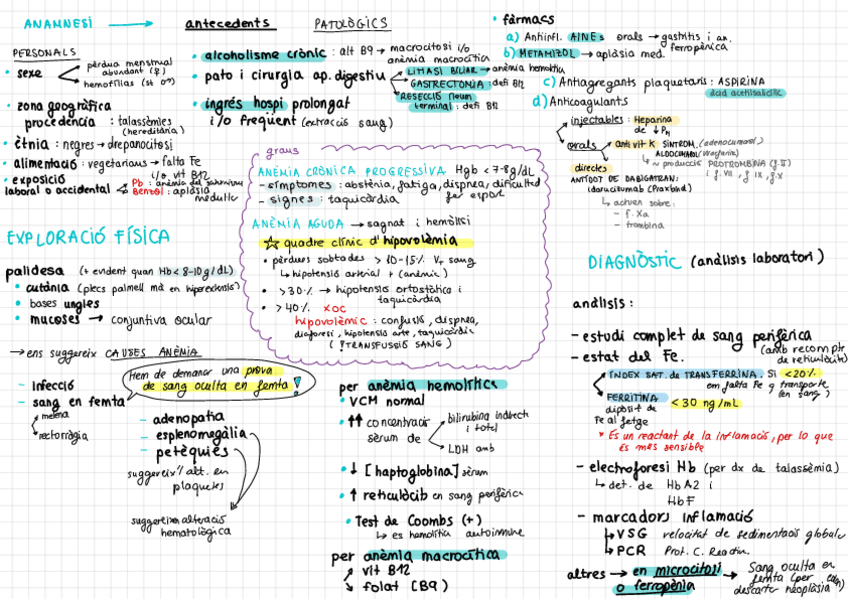 ANAMNESI → antecedents
PATOLÒGICS
PERSONALS
• sexe
pèrdua menstrual
abundant (♀)
hemofílies
• zona geogràfica
procedència : talassèmies
(hereditària)
• ètnia : negres → drepanocitosi
• alimentació : vegetarians → falta Fe
i/o vit B12
• exposició
laboral o accidental
Pb : anèmia del
Benzol : aplàsia
medul·lar
• alcoholisme crònic : alt B9 → macrocitosi i/o
anèmia macrocítica
• pato i cirurgia ap. digestiu
LITIASI BILIAR → anèmia hemolítica
GASTRECTOMIA : defi B12
RESECCIÓ íleum
terminal : defi B12
• ingrés hospi prolongat
i/o freqüent (extracció sang)
• fàrmacs
a) Antiinfl. AINEs orals → gastritis i an.
ferropènica
b) METAMIZOL → aplàsia med.
c) Antiagregants plaquetaris : ASPIRINA
àcid acetilsalicílic
d) Anticoagulants
injectables : Heparina
de ↓ Pm
orals → anti vit K SINTROM. (acenocumarol)
ALDOCUMAR (Warfarina)
↳ ~ producció PROTROMBINA (f.II)
i f. VII, f IX, f X
directes
ANTÍDOT DE DABIGATRAN:
idarucizumab (Praxbind)
↳ actuen sobre:
– f. Xa
– trombina
graus
ANÈMIA CRÒNICA PROGRESSIVA Hgb < 7-8g/dL
– símptomes : astènia, fatiga, dispnea, dificultad
fer esport
– signes : taquicàrdia
ANÈMIA AGUDA → sagnat i hemòlisi
☆ quadre clínic d'hipovolèmia
• pèrdues sobtades > 10-15% V. sang
↳ hipotensió arterial + (anèmic)
• > 30% → hipotensió ortostàtica i
taquicàrdia
• > 40% xoc
hipovolèmic : confusió, dispnea,
diaforesi, hipotensió arte, taquicàrdic
( !TRANSFUSSIÓ SANG )
EXPLORACIÓ FÍSICA
palidesa (+ evident quan Hb < 8-10 g/dL)
• cutània (plecs palmell mà en hiperextensió)
• bases ungles
• mucoses → conjuntiva ocular
→ ens suggereix CAUSES ANÈMIA
– infecció
– sang en femta
melena
rectorràgia
Hem de demanar una prova
de sang oculta en femta !
– adenopatia
– esplenomegàlia
– petèquies
suggereix alt. en
plaquetes
suggereixen alteració
hematològica
per anèmia hemolítica
• VCM normal
• ↑↑ concentració
sèrum de
bilirubina indirecta
i total
LDH
• ↓ [haptoglobina] sèrum
• ↑ reticulòcib en sang perifèrica
• Test de Coombs (+)
↳ es hemolítica autoimmune
per anèmia macrocítica
↗ vit B12
↘ folat (B9)
DIAGNÒSTIC (anàlisis laboratori)
anàlisis :
– estudi complet de sang perifèrica
(amb recompte
de reticulòcits)
– estat del Fe.
ÍNDEX SAT. de TRANSFERRINA. Si <20%
em falta Fe q transporte
(en sang)
FERRITINA < 30 ng/mL
dipòsit de
Fe al fetge
* És un reactant de la inflamació, per lo que
és més sensible
– electroforesi Hb (per dx de talassèmia)
↳ det. de HbA2 i
HbF
– marcadors inflamació
↳ VSG velocitat de sedimentació globular
↳ PCR Prot. C. Reactiva.
altres → en microcitosi
o ferropènia
→ Sang oculta en
femta (per
descarte neoplàsia)